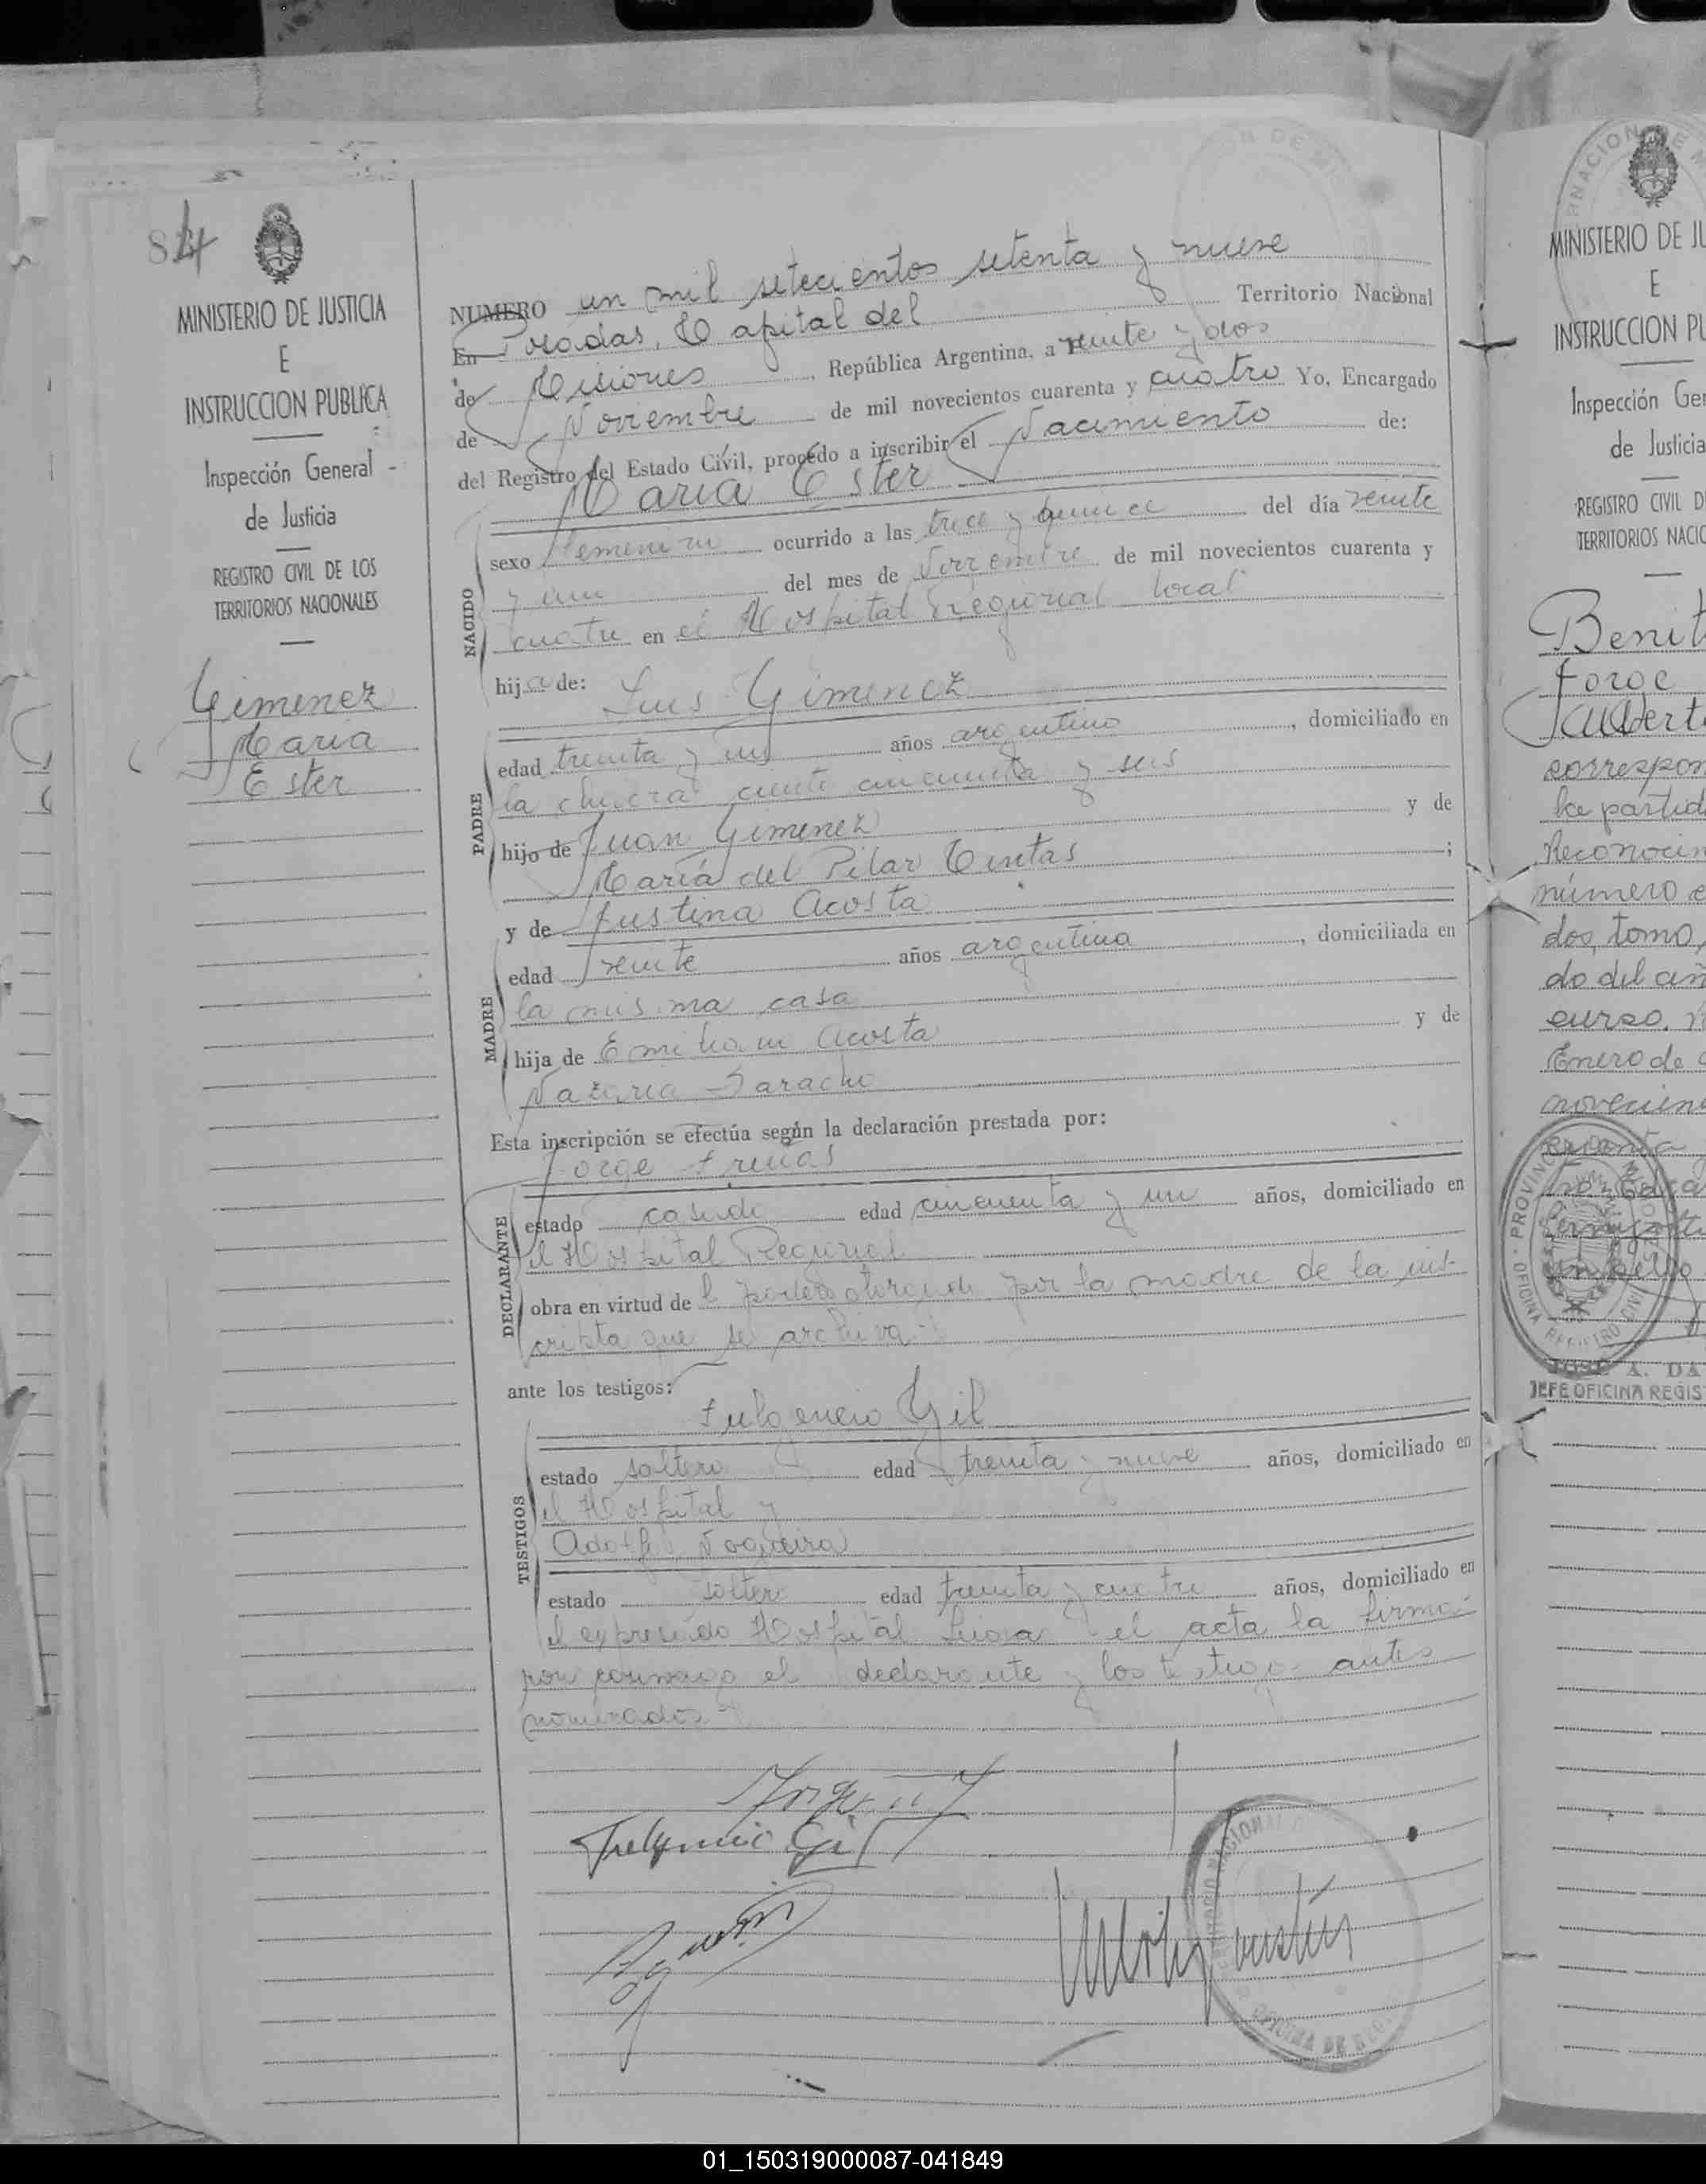 84
MINISTERIO DE JUSTICIA
E
INSTRUCCION PUBLICA
Inspección General
de Justicia
REGISTRO CIVIL DE LOS
TERRITORIOS NACIONALES
Gimenez
Maria
Ester
NUMERO un mil setecientos setenta y nueve
En Posadas, Capital del Territorio Nacional
de Misiones, República Argentina, a veinte y dos
de Noviembre de mil novecientos cuarenta y cuatro Yo, Encargado
del Registro del Estado Civil, procedo a inscribir el Nacimiento de:
Maria Ester
NACIDO
sexo Femenino ocurrido a las trece y quince del día veinte
y uno del mes de Noviembre de mil novecientos cuarenta y
cuatro en el Hospital Regional local
hija de: Luis Gimenez
PADRE
edad treinta y años argentino, domiciliado en
la chacra ciento cincuenta y seis
hijo de Juan Gimenez y de
María del Pilar ;
y de Justina Acosta
MADRE
edad veinte años argentina, domiciliada en
la misma casa
hija de Emiliano Acosta y de
Nazaria Saracho
Esta inscripción se efectúa según la declaración prestada por:
Jorge
DECLARANTE
estado casado edad cincuenta y un años, domiciliado en
el Hospital Regional
obra en virtud de l poder otorgado por la madre de la ins-
cripta que se archiva
ante los testigos:
Fulgencio Gil
TESTIGOS
estado soltero edad treinta y nueve años, domiciliado en
el Hospital y
Adolfo Nogueira
estado soltero edad treinta y cuatro años, domiciliado en
el expresado Hospital Leida el acta la firma-
ron conmigo el declarante y los testigos antes
nombrados
Fulgencio Gil
OFICINA DE
MINISTERIO DE JU
E
INSTRUCCION PU
Inspección Gen
de Justicia
REGISTRO CIVIL D
TERRITORIOS NACIO
Benit
Jorge
Albert
correspon
la partid
Reconocim
número
dos, tomo
do del añ
curso.
Enero de
novecien
PROVINCIA
OFICINA REGISTRO CIVIL
JOSE A. DA
JEFE OFICINA REGIS
01_150319000087-041849